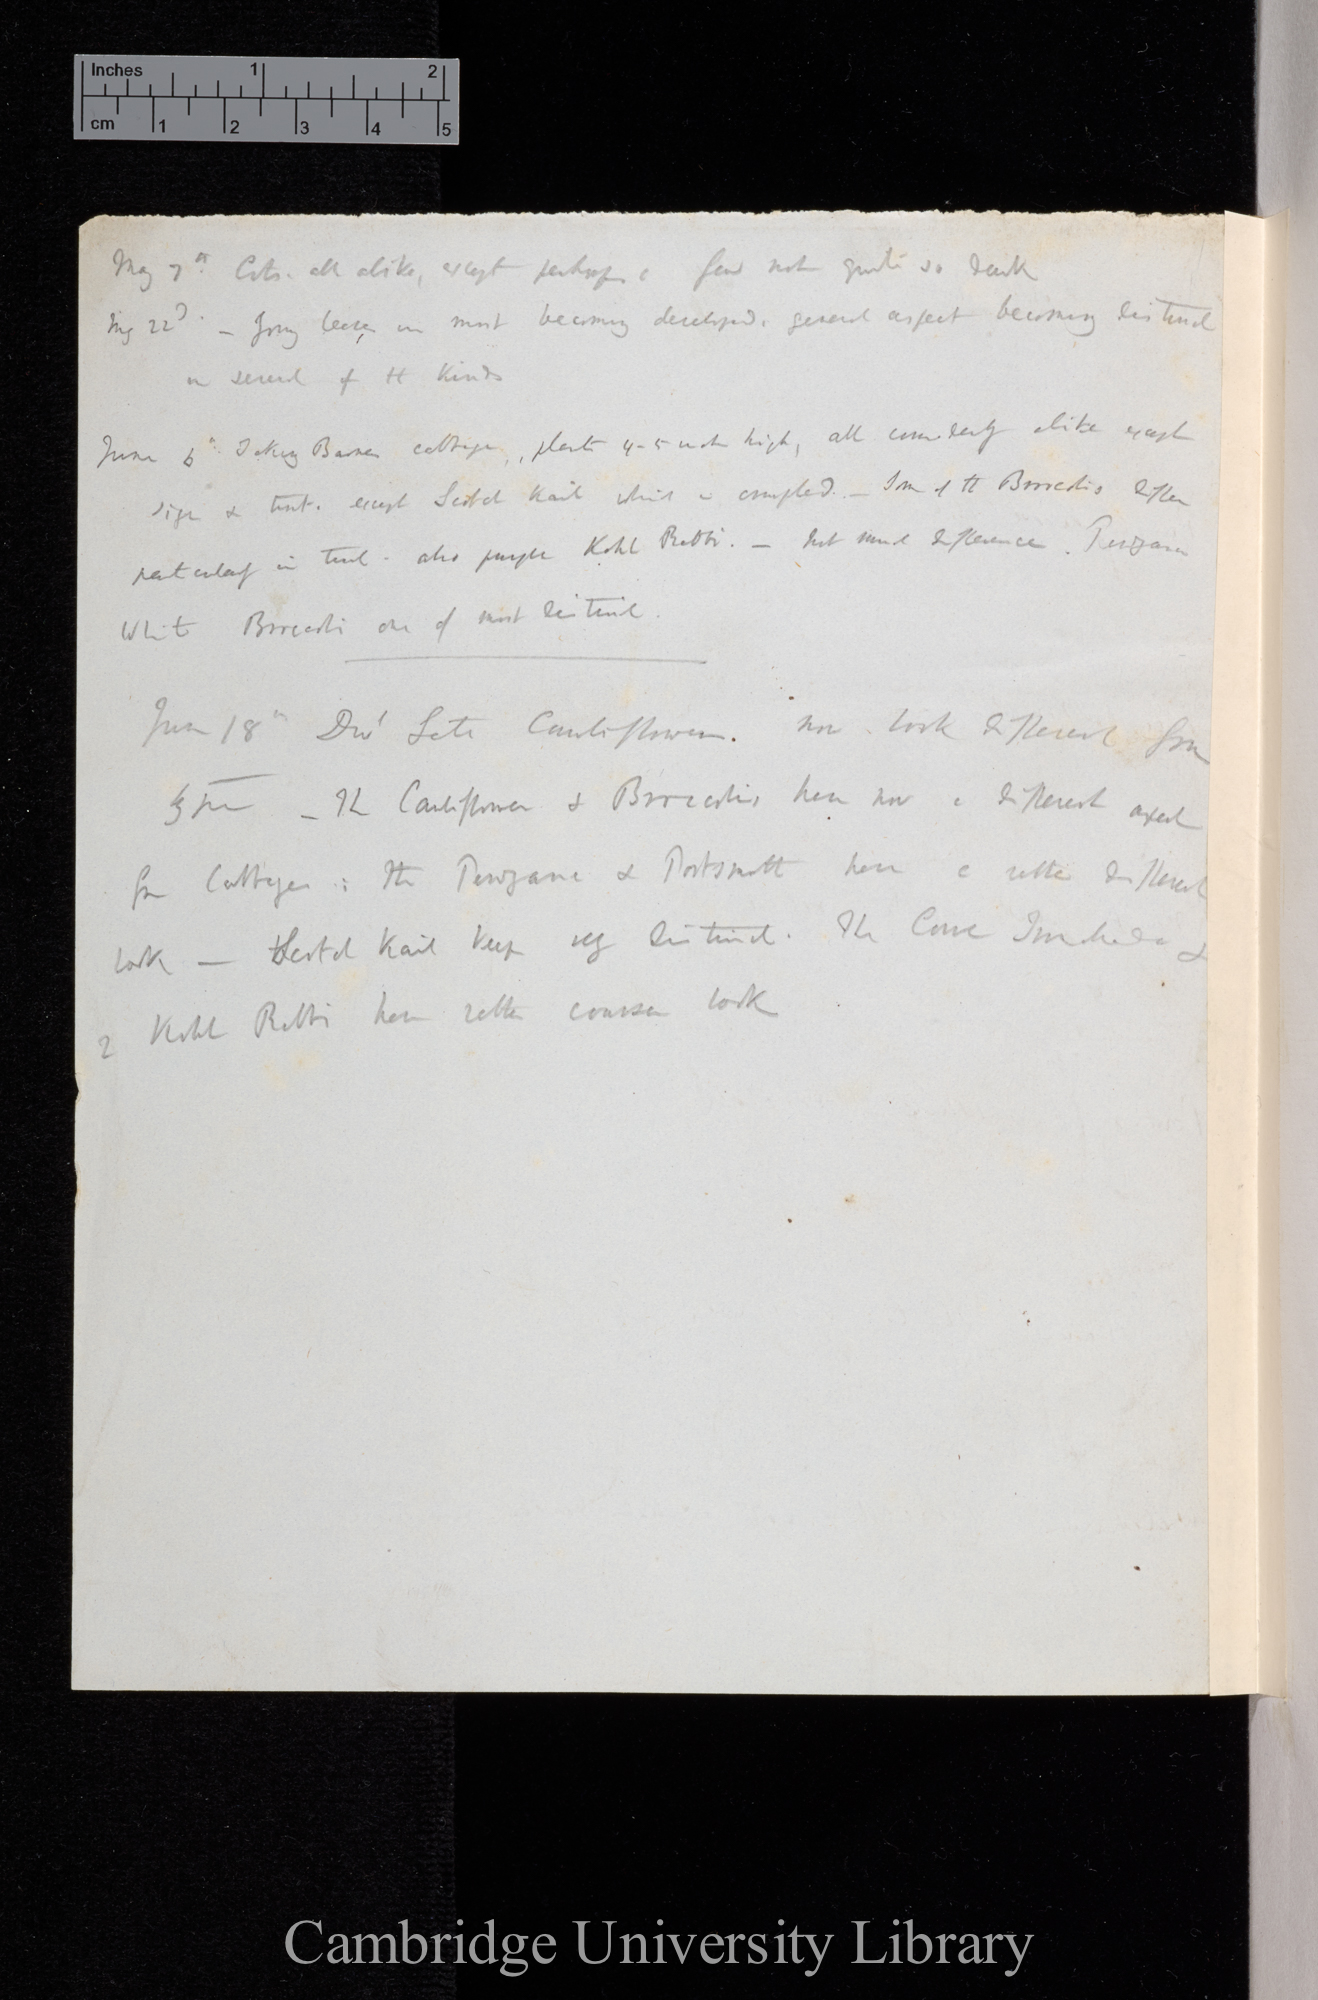 Inches 1 2
cm 1 2 3 4 5
May 7th Cots. all alike, except perhaps a few not quite so dark
May 22d. — Young leaves in most becoming developed, general aspect becoming distinct
in several of the Kinds
June 6th Barnes cabbage, plants 4-5 inch high, all considerably alike except
size & tint. except Scotch Kail which is crumpled. — Some of the Broccolis differ
particularly in tint. also purple Kohl Rabbi. — not much difference. Penzance
White Broccoli one of most distinct.
June 18th Late Cauliflower. now look different from
— The Cauliflower & Broccolis have now a different aspect
from Cabbages: the Penzance & Portsmouth have a rather different
look — Scotch Kail keep very distinct. The Couve Tronchuda &
2 Kohl Rabbi have rather coarser look
Cambridge University Library